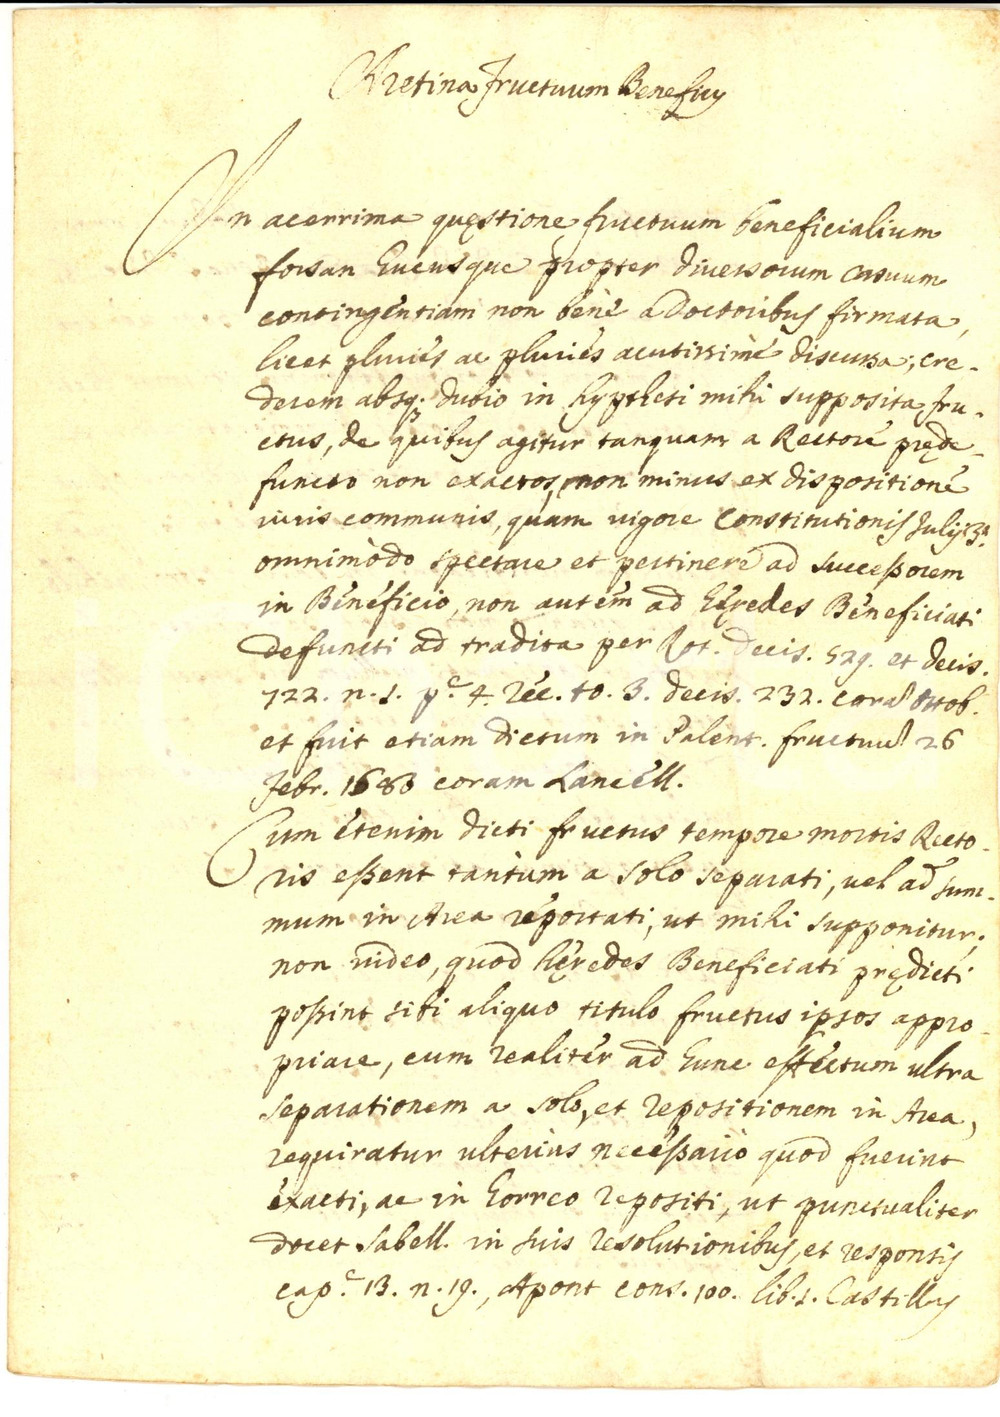 Aretina Fructuum Beneficij
In acerrima quęstione fructuum beneficialium
forsan hucusque propter diversorum casuum
contingentiam non benè a Doctoribus firmata,
licet pluriès ac pluriès acutissimè discussa, cre-
derem absq; dubio in hypothesi mihi supposita fru-
ctus, de quibus agitur tanquam a Rectore prędе-
functo non exactos, non minus ex dispositione
iuris communis, quàm vigore Constitutionis Julij 3ij
omnimòdo spectare et pertinere ad successorem
in Beneficio, non autem ad Hęredes Beneficiati
defuncti ad tradita per Rot. decis. 529. et decis.
722. n. 1. p.e 4. rec. to. 3. decis. 232. corā Ottob.
et fuit etiam dictum in Palent. fructuū 26
Febr. 1683 coram Lancell.
Cum etenim dicti fructus tempore mortis Recto-
ris essent tantùm a solo separati, vel ad sum-
mum in Area reportati, ut mihi supponitur;
non video, quod hęredes Beneficiati prędicti
possint sibi aliquo titulo fructus ipsos appro-
priare, cum realitèr ad hunc effectum ultra
separationem a solo, et repositionem in Area,
requiratur ulterius necessario quod fuerint
exacti, ac in horreo repositi, ut punctualiter
docet Sabell. in suis resolutionibus, et responsis
cap.e 13. n. 19., Apont cons. 100. lib. 1. Castillus